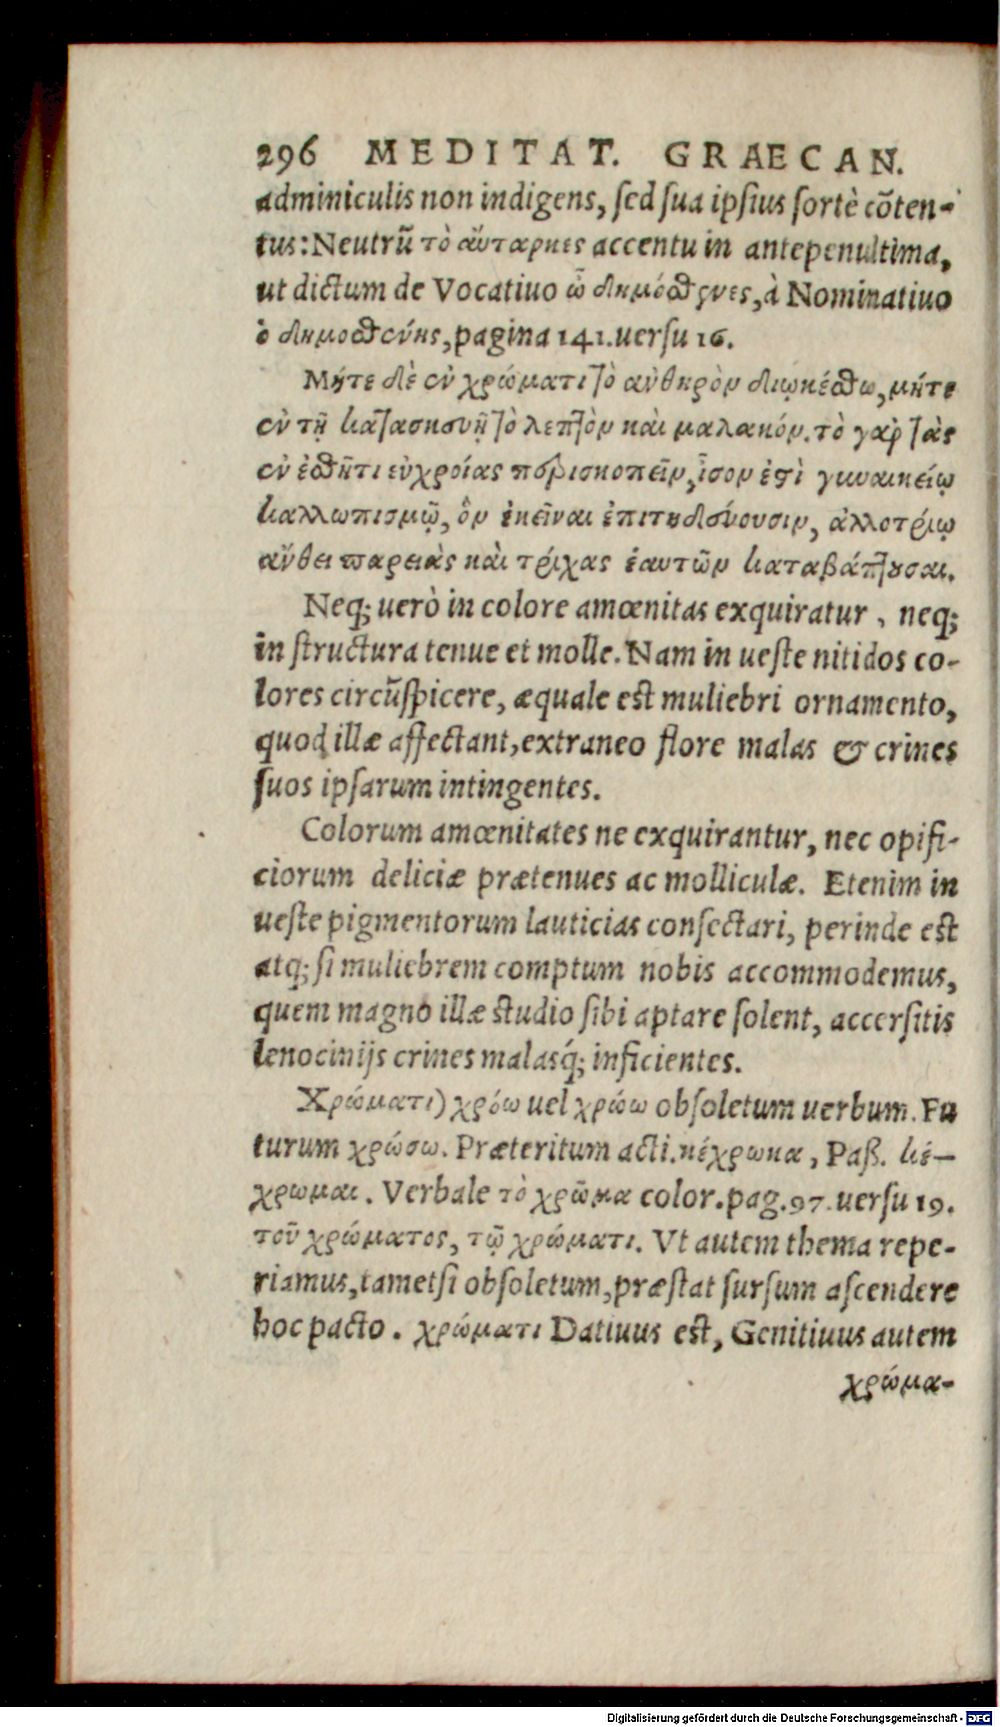 296 MEDITAT. GRAECAN.
adminiculis non indigens, sed sua ipsius sortè cõten-
tus: Neutrũ τὸ αὔταρκες accentu in antepenultima,
ut dictum de Vocatiuo ὦ δημόσθενες, à Nominatiuo
ὁ δημοσθένης, pagina 141. uersu 16.
Μήτε δὲ ἐν χρώματι τὸ ἀνθηρὸν διῳκέσθω, μήτε
ἐν τῇ κατασκευῇ τὸ λεπτὸν καὶ μαλακόν. τὸ γὰρ τὰς
ἐν ἐσθῆτι εὐχροίας περισκοπεῖν, ἴσον ἐστὶ γυναικείῳ
καλλωπισμῷ, ὃν ἐκεῖναι ἐπιτηδεύουσιν, ἀλλοτρίῳ
ἄνθει παρειὰς καὶ τρίχας ἑαυτῶν καταβάπτουσαι.
Neq; uerò in colore amœnitas exquiratur, neq;
in structura tenue et molle. Nam in ueste nitidos co-
lores circũspicere, æquale est muliebri ornamento,
quod illæ affectant, extraneo flore malas & crines
suos ipsarum intingentes.
Colorum amœnitates ne exquirantur, nec opifi-
ciorum deliciæ prætenues ac molliculæ. Etenim in
ueste pigmentorum lauticias consectari, perinde est
atq; si muliebrem comptum nobis accommodemus,
quem magno illæ studio sibi aptare solent, accersitis
lenocinijs crines malasq́; inficientes.
Χρώματι) χρόω uel χρώω obsoletum uerbum. Fu
turum χρώσω. Præteritum acti. κέχρωκα, Paß. κέ-
χρωμαι. Verbale τὸ χρῶμα color. pag. 97. uersu 19.
τοῦ χρώματος, τῷ χρώματι. Vt autem thema repe-
riamus, tametsi obsoletum, præstat sursum ascendere
hoc pacto. χρώματι Datiuus est, Genitiuus autem
χρώμα-
Digitalisierung gefördert durch die Deutsche Forschungsgemeinschaft - DFG